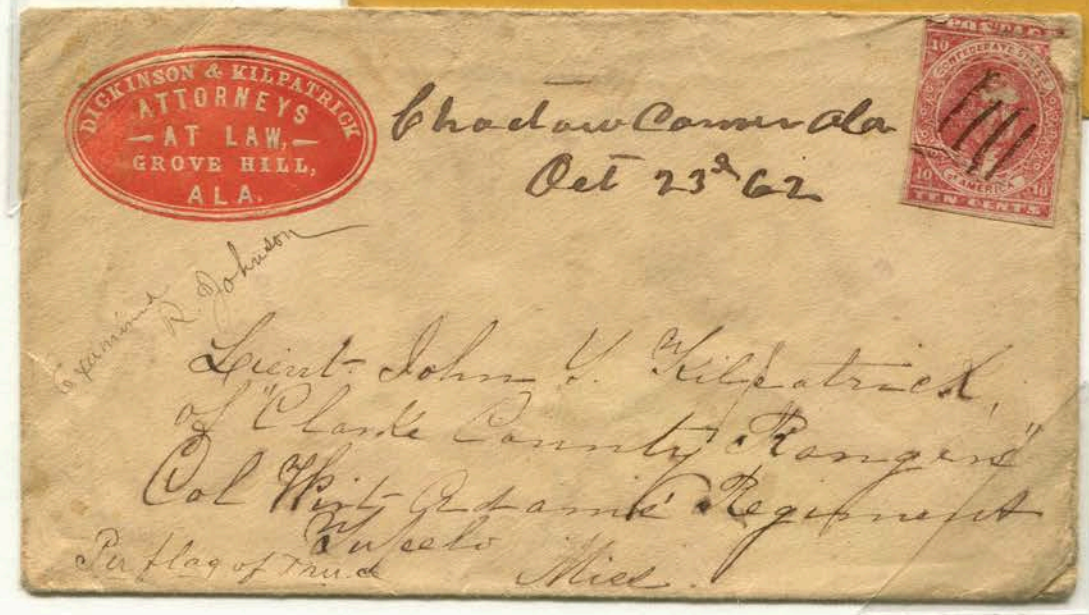 DICKINSON & KILPATRICK
ATTORNEYS
AT LAW,
GROVE HILL,
ALA.
Choctaw Corner Ala
Oct 23d 62
POSTAGE
10
CONFEDERATE STATES
OF AMERICA
10 10
TEN CENTS
Examined
R. Johnson
Lieut. John Y. Kilpatrick,
of "Clarke County Rangers"
Col Wirt Adams Regiment
Tupelo
Miss.
Per flag of Truce